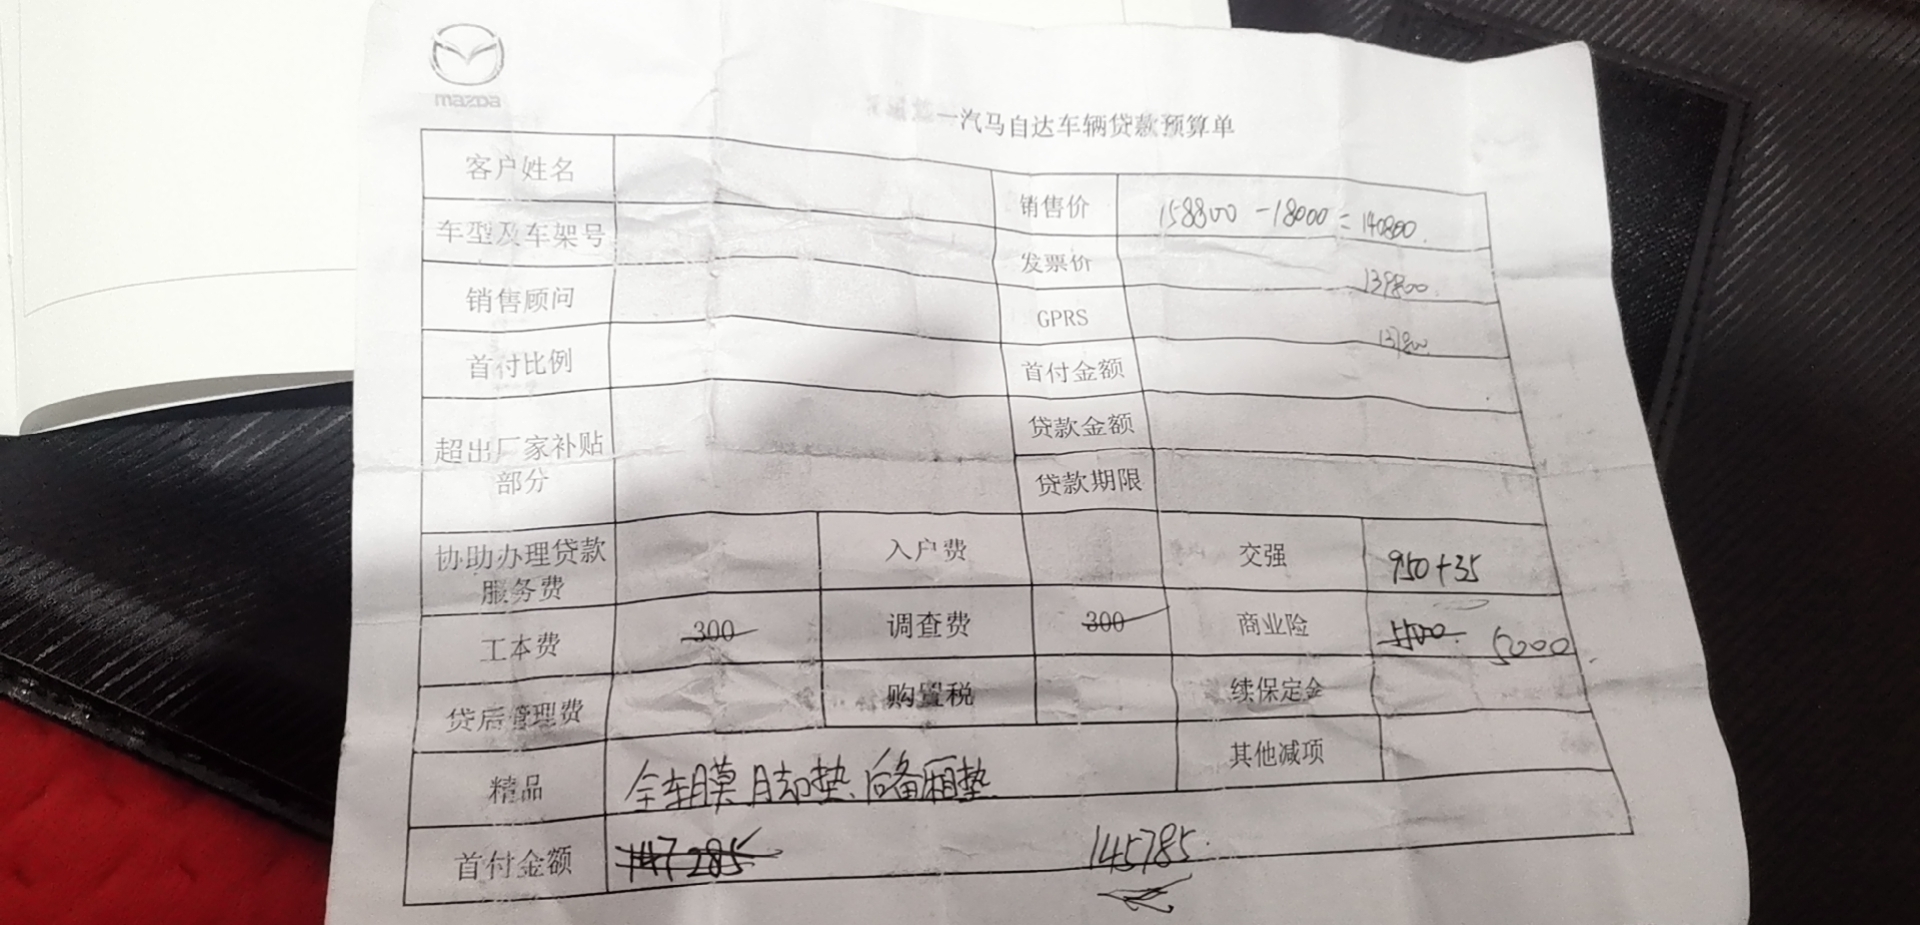 mazda
一汽马自达车辆贷款预算单
客户姓名
销售价 158800 -18000 = 140800.
车型及车架号
发票价 139800.
销售顾问
GPRS 137800.
首付比例
首付金额
超出厂家补贴部分
贷款金额
贷款期限
协助办理贷款服务费 入户费 交强 950+35
工本费 300 调查费 300 商业险 5500 5000.
贷后管理费 购置税 续保定金
精品 全车膜 脚垫、后备厢垫 其他减项
首付金额 147285 145785.